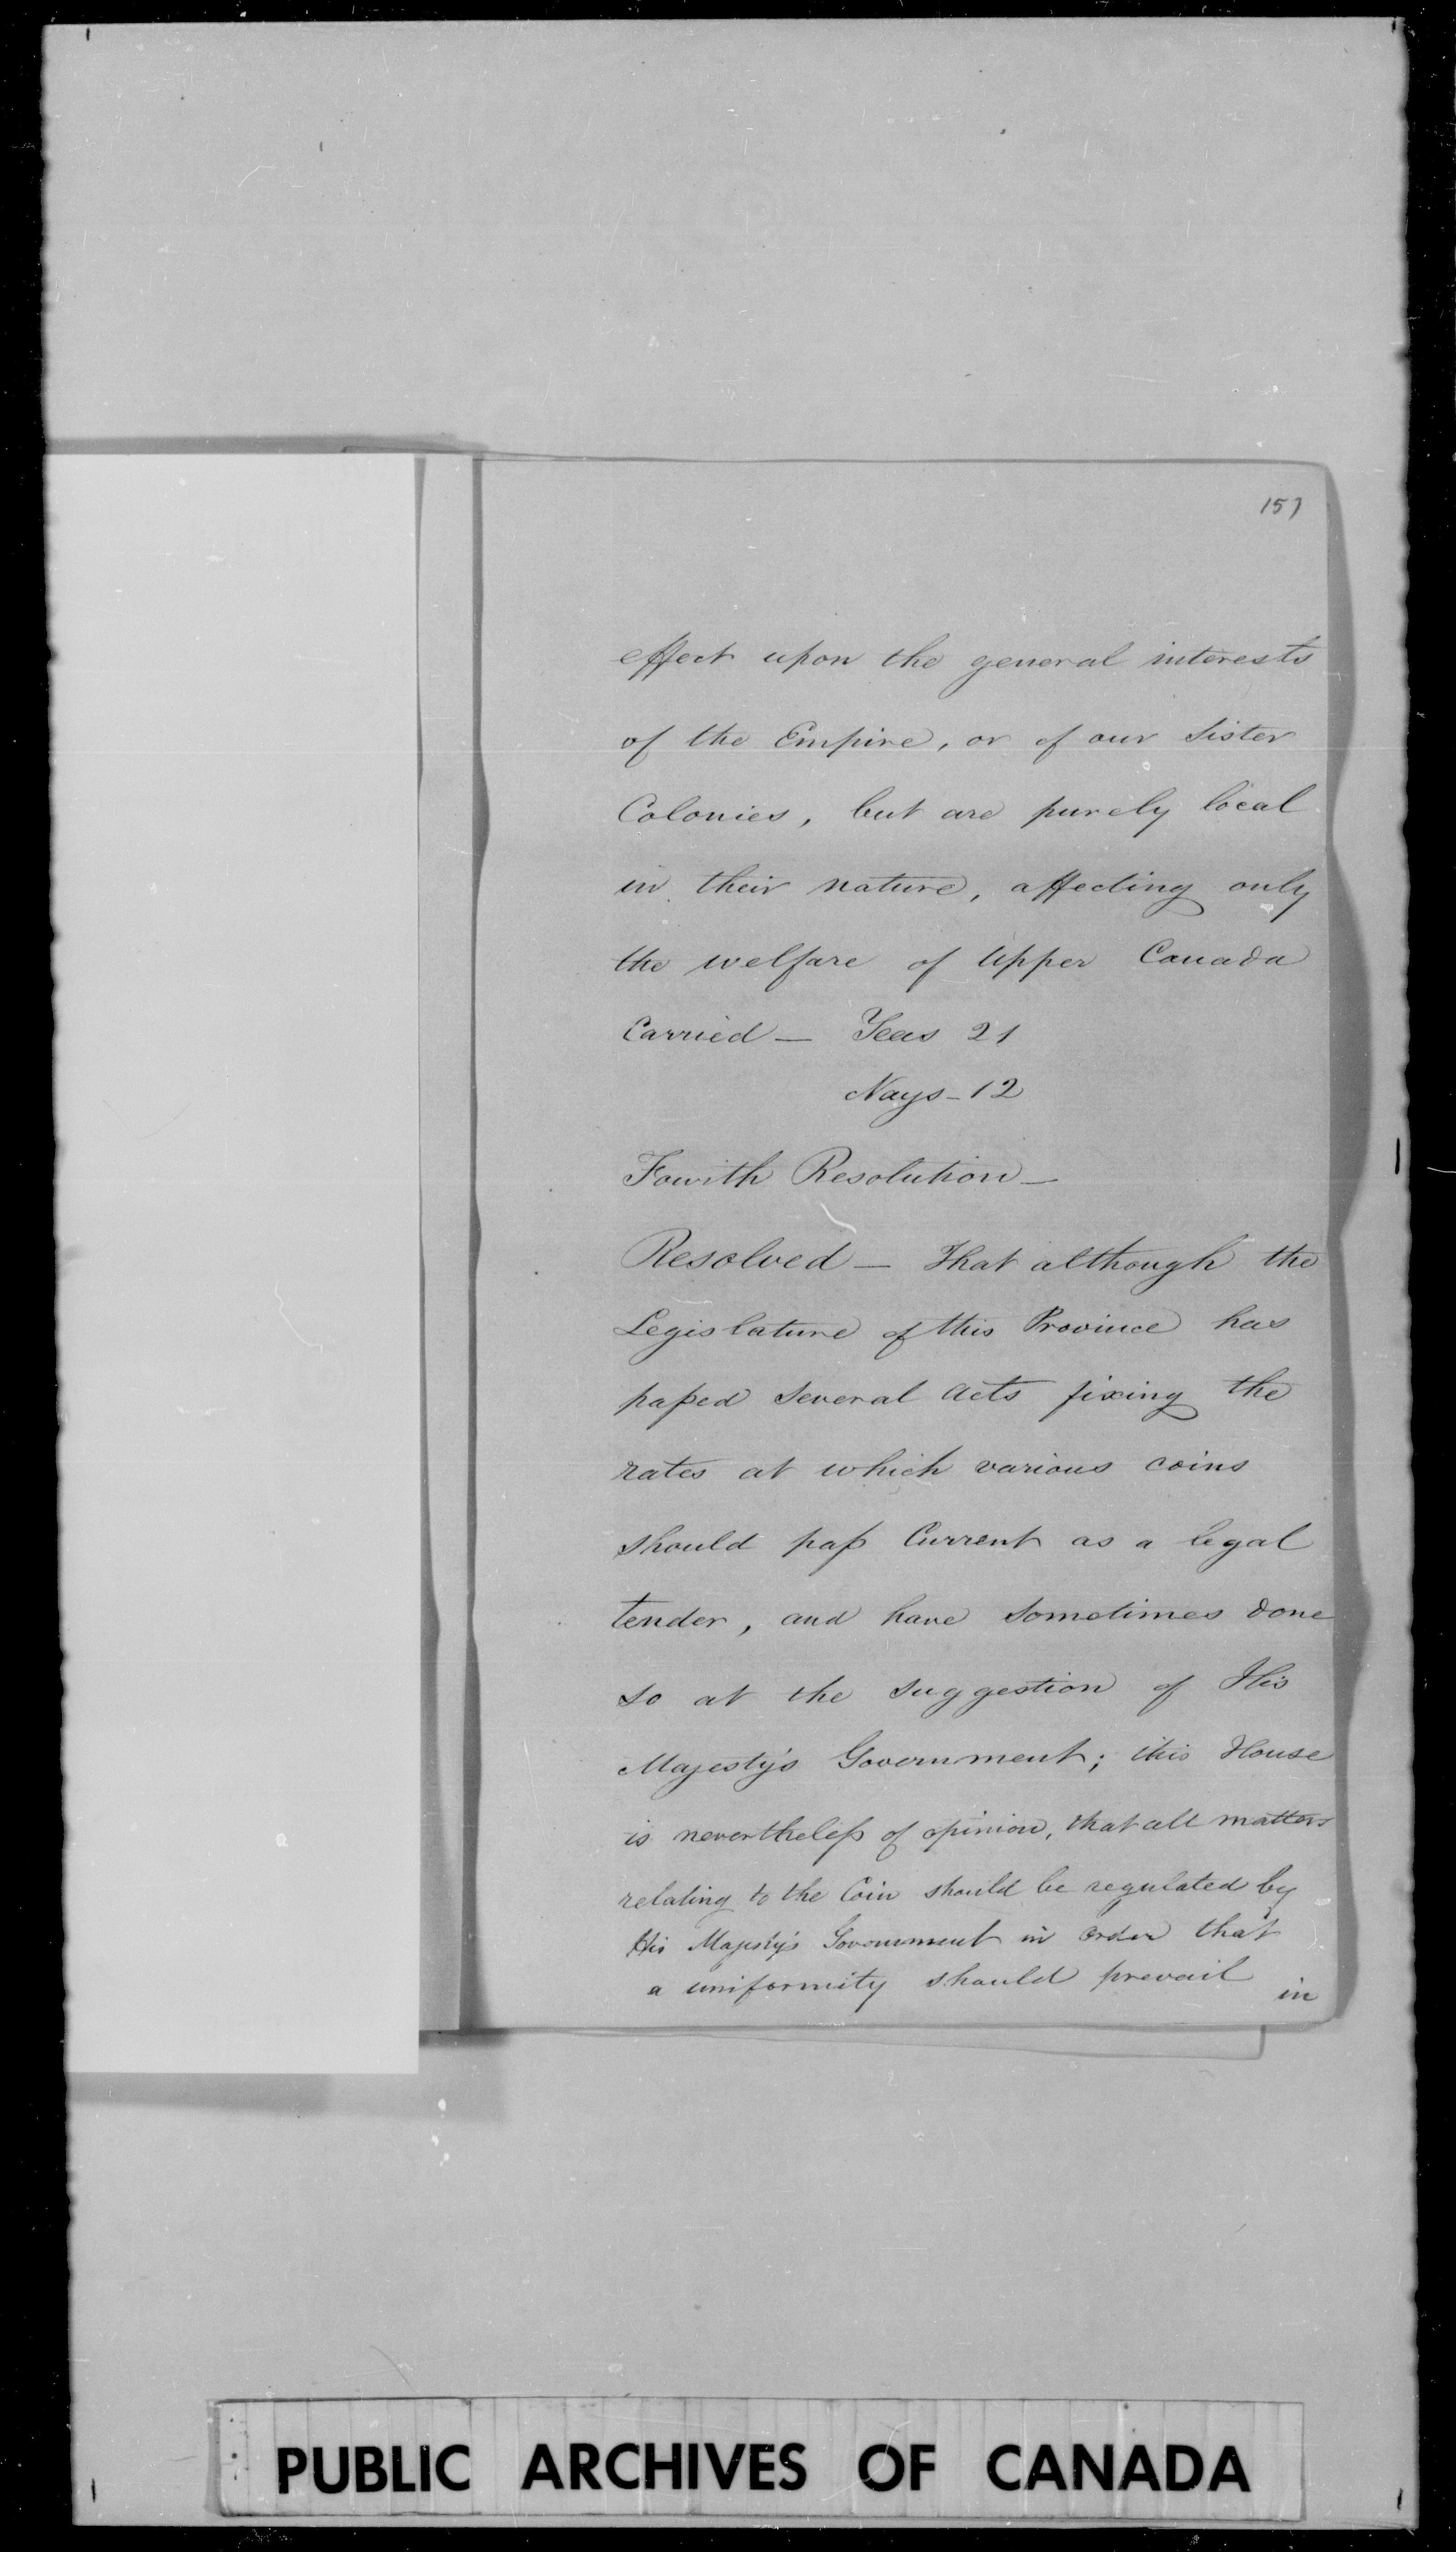 157
effect upon the general interests
of the Empire, or of our Sister
Colonies, but are purely local
in their nature, affecting only
the welfare of Upper Canada
Carried — Yeas 21
Nays - 12
Fourth Resolution —
Resolved — That although the
Legislature of this Province has
passed several Acts fixing the
rates at which various coins
should pass Current as a legal
tender, and have sometimes done
so at the suggestion of His
Majesty's Government; this House
is nevertheless of opinion, that all matters
relating to the Coin should be regulated by
His Majesty's Government in order that
a uniformity should prevail
in
PUBLIC ARCHIVES OF CANADA